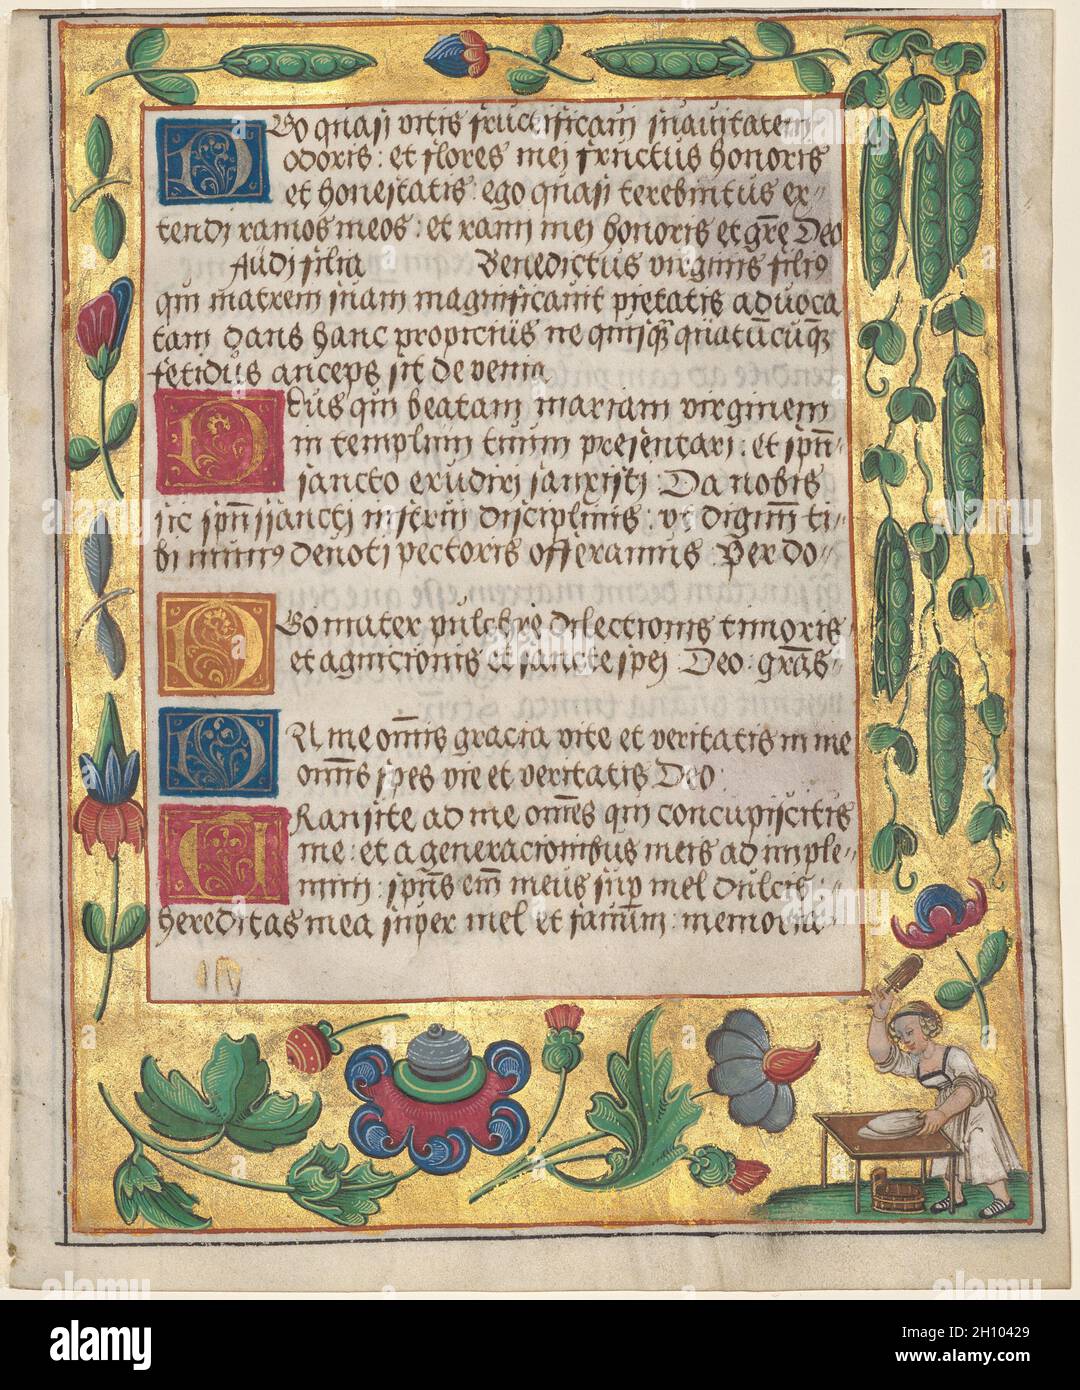 Go quasi vitis fructificavi suavitatem
odoris : et flores mei fructus honoris
et honestatis : ego quasi terebintus ex-
tendi ramos meos : et rami mei honoris et grē Deo
Audi filia Benedictus virginis filiꝰ
qui matrem suam magnificavit pietatis advoca
tam dans hanc propicius ne quisq̄ quātūcūq̄
fetidus anceps sit de venia
tus qui beatam mariam virginem
in templum tuum presentari : et spū-
sancto erudiri sanxisti Da nobis
sic spūssancti disciplinis : ut dignum ti-
bi devoti pectoris offeramus : Per do-
Go mater pulchre dilectionis timoris
et agnicionis et sancte spei Deo : grās-
N me omīs gracia vite et veritatis in me
omīs spes vie et veritatis Deo
Ransite ad me omēs qui concupiscitis
me : et a generacionibus meis adimple-
mini : spūs em̄ meus sup mel dulcis :
hereditas mea super mel et favum : memoria
alamy
Image ID: 2H10429
www.alamy.com